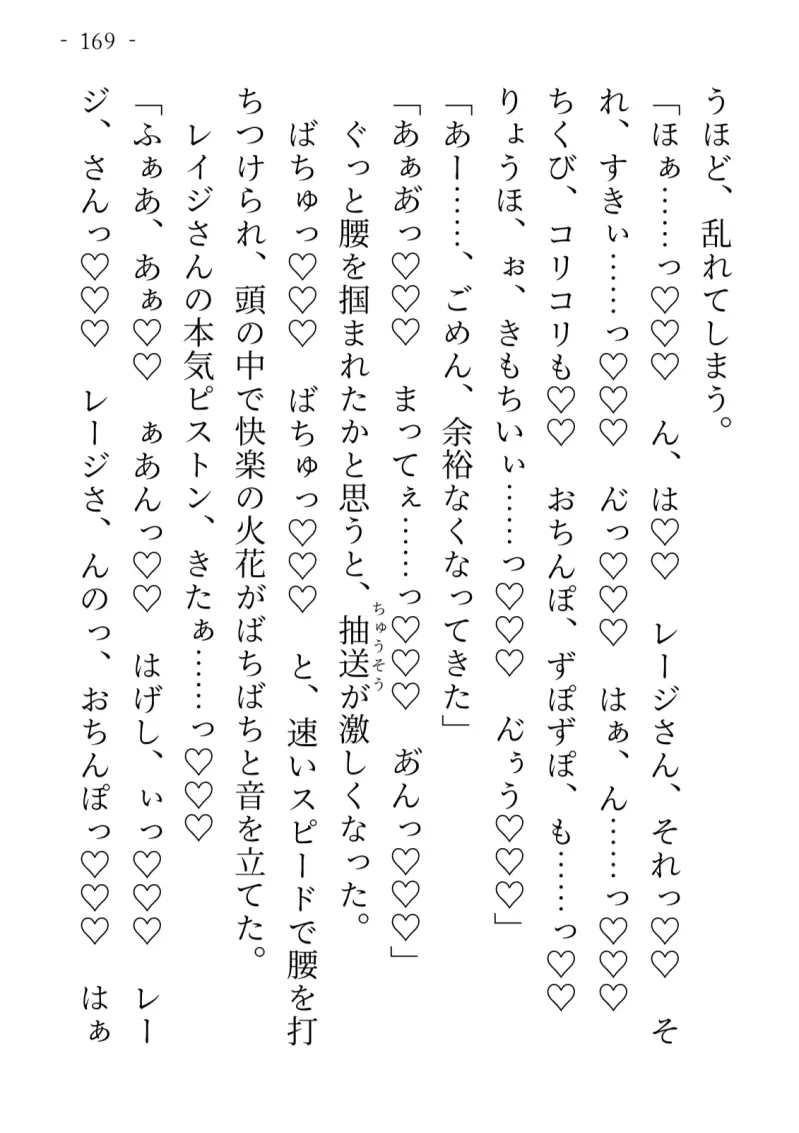 - 169 -
うほど、乱れてしまう。
「ほぁ……っ♡♡♡　ん、は♡♡　レージさん、それっ♡♡　そ
れ、すきぃ……っ♡♡♡　ん゙っ♡♡♡　はぁ、ん……っ♡♡♡
ちくび、コリコリも♡♡　おちんぽ、ずぽずぽ、も……っ♡♡
りょうほ、ぉ、きもちいぃ……っ♡♡♡　ん゙ぅう♡♡♡」
「あー……、ごめん、余裕なくなってきた」
「あぁあ゙っ♡♡♡　まってぇ……っ♡♡♡　あ゙んっ♡♡♡」
ぐっと腰を掴まれたかと思うと、抽送ちゅうそうが激しくなった。
ばちゅっ♡♡♡　ばちゅっ♡♡♡　と、速いスピードで腰を打
ちつけられ、頭の中で快楽の火花がばちばちと音を立てた。
レイジさんの本気ピストン、きたぁ……っ♡♡♡
「ふぁあ、あぁ♡♡　ぁあんっ♡♡　はげし、ぃっ♡♡♡　レー
ジ、さんっ♡♡♡　レージさ、んのっ、おちんぽっ♡♡♡　はぁ